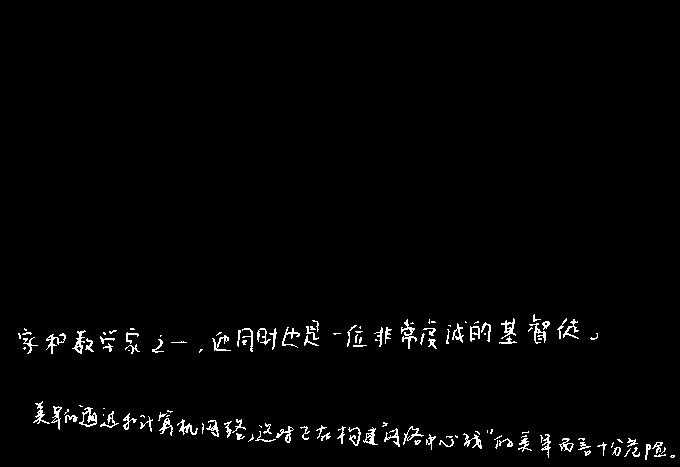 家和数学家之一，他同时也是一位非常虔诚的基督徒。
美军的通迅和计算机网络，这对正在构建“网络中心战”的美军而言十分危险。